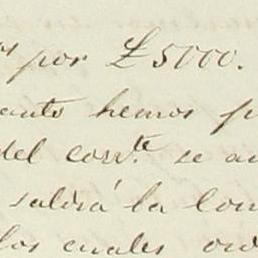 por £5000.
hemos
del corr.te se
saldrá la
los cuales